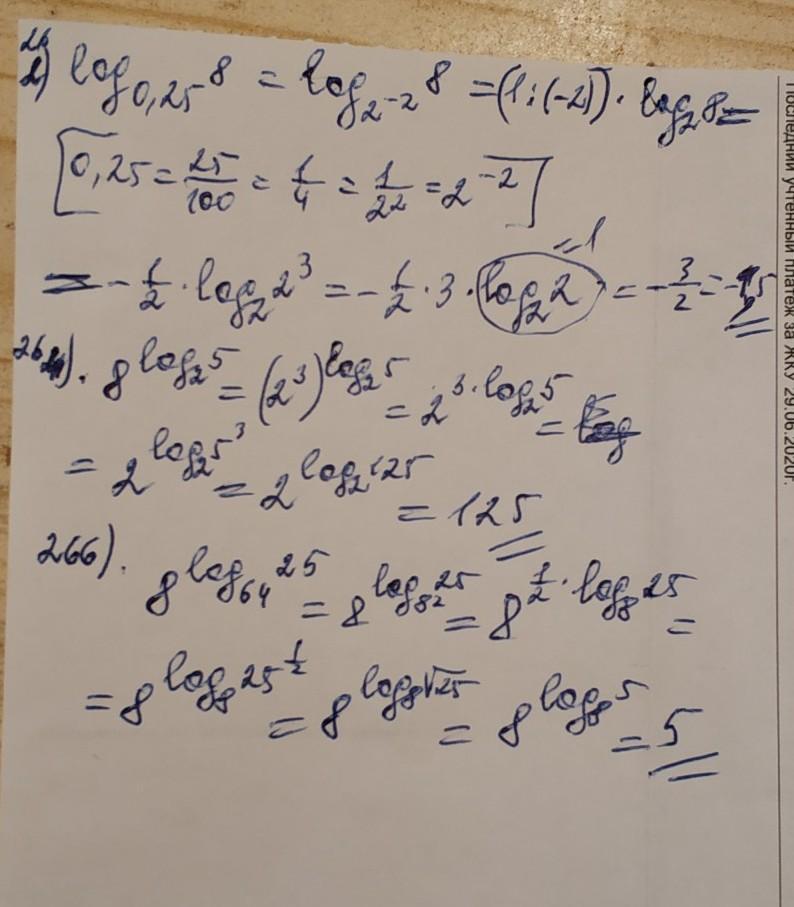 26
2) log_{0,25} 8 = log_{2^{-2}} 8 = (1:(-2)) · log_2 8 =
[0,25 = 25/100 = 1/4 = 1/2^2 = 2^{-2}]
= 1
= - 1/2 · log_2 2^3 = - 1/2 · 3 · log_2 2 = - 3/2 = -1,5
26 8^{log_2 5} = (2^3)^{log_2 5} = 2^{3 · log_2 5} =
= 2^{log_2 5^3} = 2^{log_2 125} = 125
266). 8^{log_{64} 25} = 8^{log_{8^2} 25} = 8^{1/2 · log_8 25} =
= 8^{log_8 25^{1/2}} = 8^{log_8 √25} = 8^{log_8 5} = 5
Последний учтенный платеж за ЖКУ 29.06.2020г.